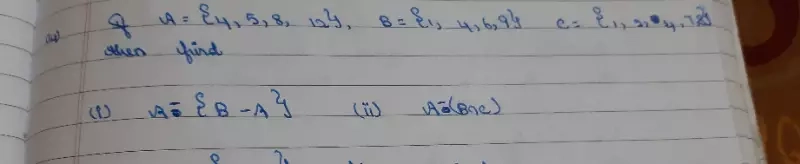 (iv) If A = {4, 5, 8, 12}, B = {1, 4, 6, 9} C = {1, 2, 4,
then find
(i) A = {B - A} (ii) A = (B∩C)